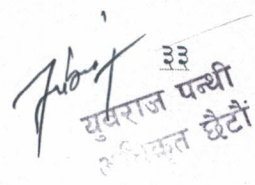 ३३
युवराज पन्थी
अधिकृत छैटौं